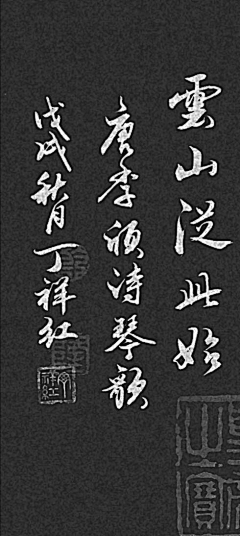 雲山從此始
唐李颀诗琴歌
戊戌秋月丁祥红